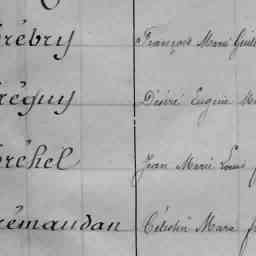 rébry François Marie Guill
réguy Désiré Eugène Ma
réhel Jean Marie Louis
rémaudan Célestin Marie